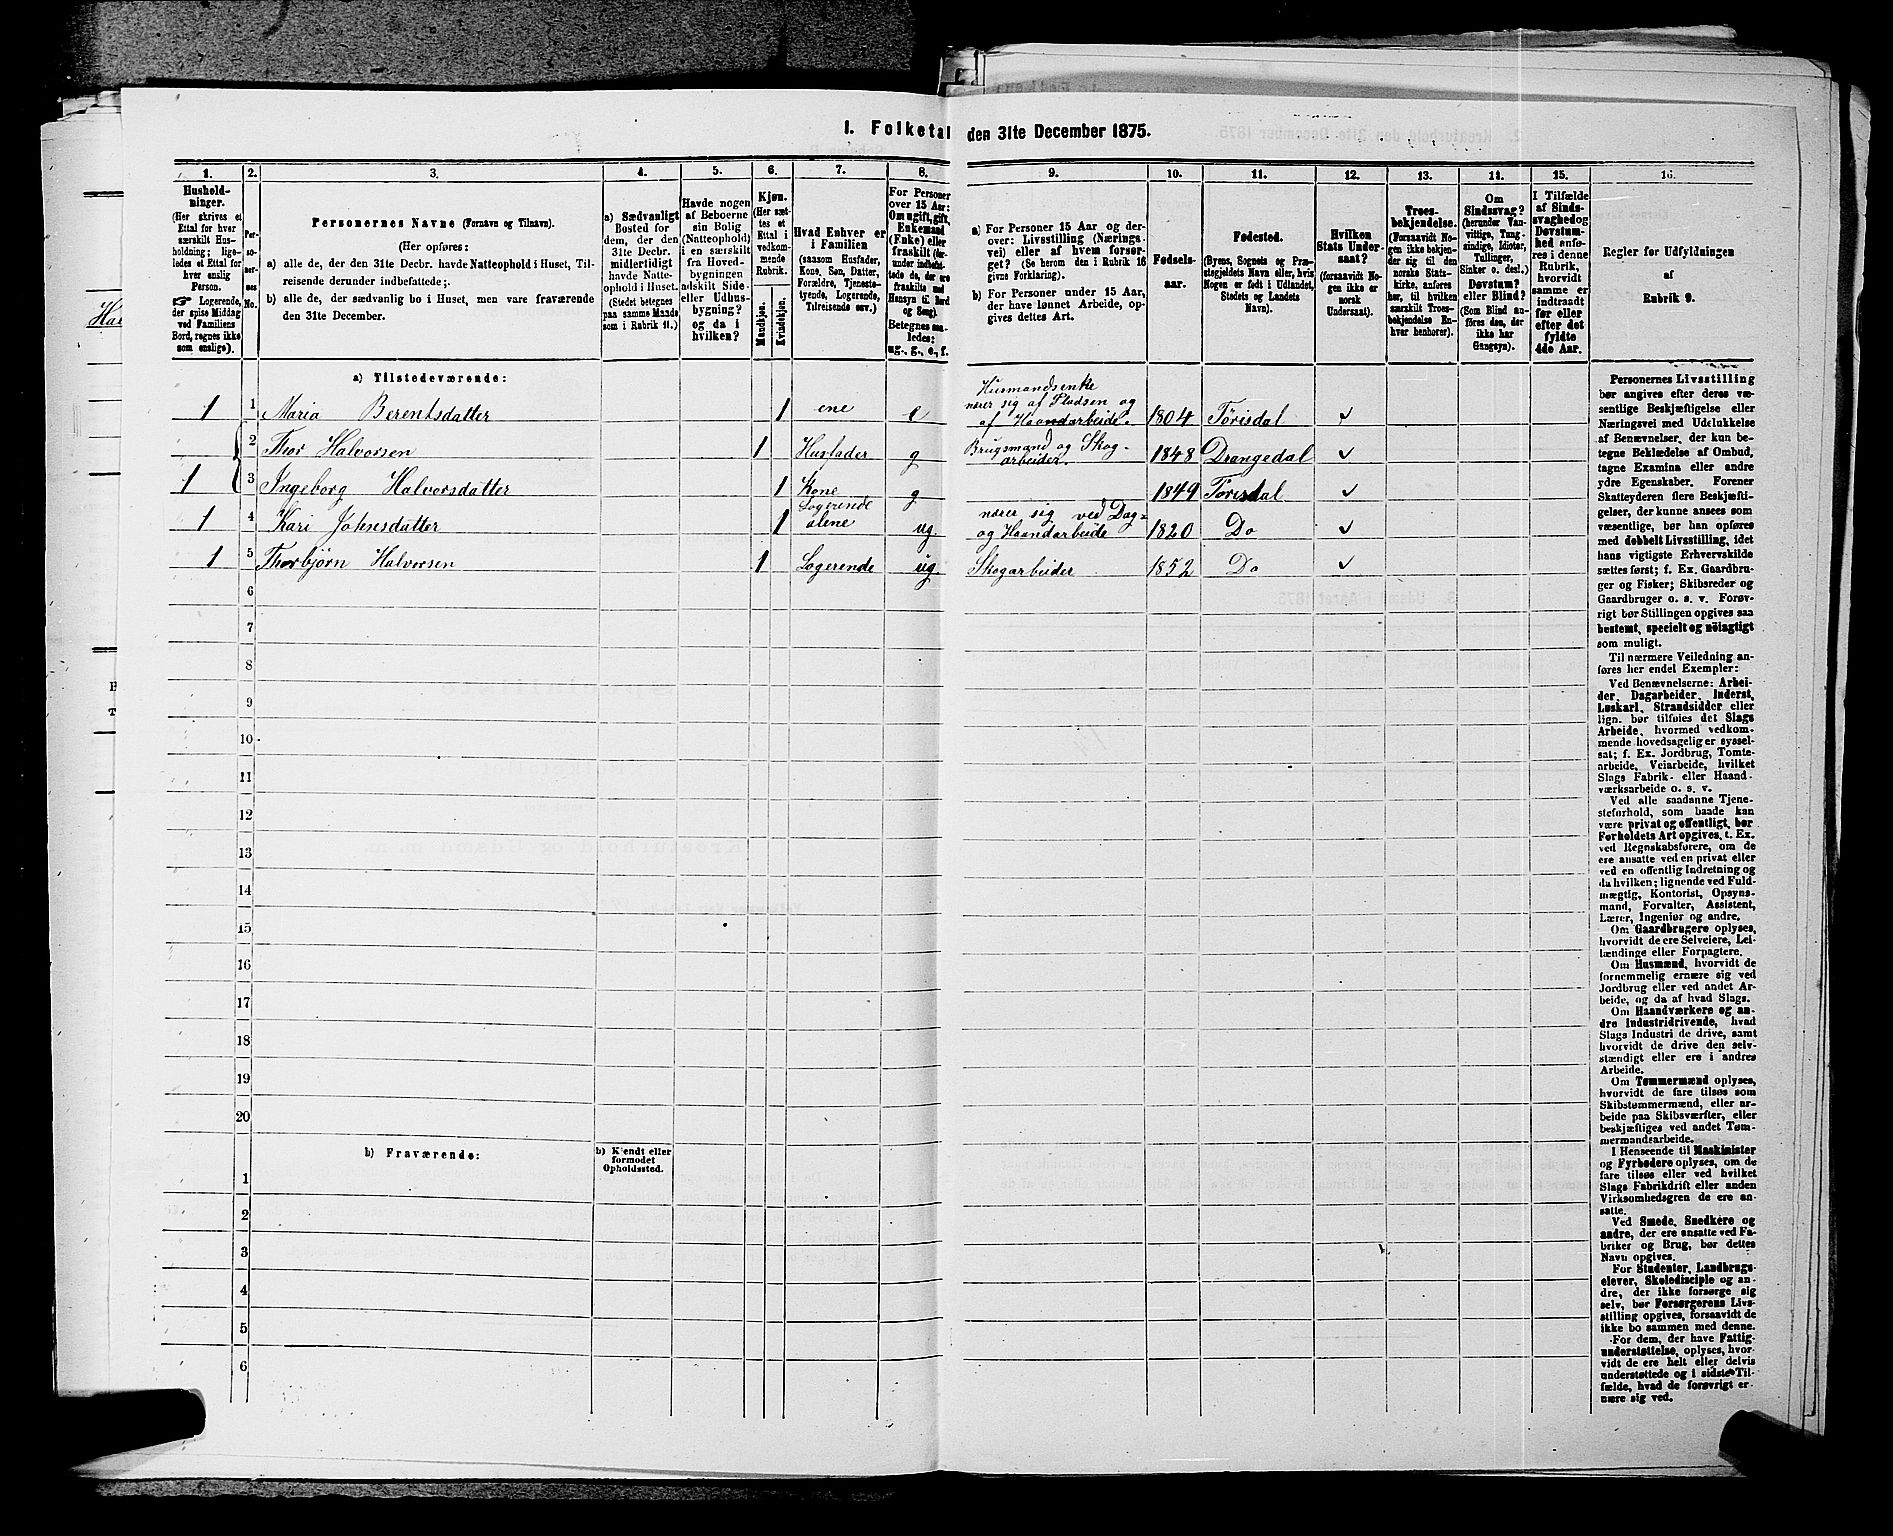 I. Folketal den 31te December 1875.
1. 2. 3. 4. 5. 6. 7. 8. 9. 10. 11. 12. 13. 14. 15. 16.
Hushold-
ninger.
(Her skrives et
Ettal for hver
særskilt Hus-
holdning; lige-
ledes et Ettal for
hver enslig
Person.
☞ Logerende,
der spise Middag
ved Familiens
Bord, regnes ikke
som enslige).
Per-
so-
ner-
nes
No.
Personernes Navne (Fornavn og Tilnavn).
(Her opføres:
a) alle de, der den 31te Decbr. havde Natteophold i Huset, Til-
reisende derunder indbefattede;
b) alle de, der sædvanlig bo i Huset, men vare fraværende
den 31te December.
a) Sædvanligt
Bosted for
dem, der den
31te Decbr.
midlertidigt
havde Natte-
ophold i Huset.
(Stedet betegnes
paa samme Maade
som i Rubrik 11.)
Havde nogen
af Beboerne
sin Bolig
(Natteophold)
i en særskilt
fra Hoved-
bygningen
adskilt Side-
eller Udhus-
bygning?
og da i
hvilken?
Kjøn.
(Her sæt-
tes et
Ettal i
vedkom-
mende
Rubrik.
Mandkjøn.
Kvindekjøn.
Hvad Enhver er
i Familien
(saasom Husfader,
Kone, Søn, Datter,
Forældre, Tjeneste-
tyende, Logerende,
Tilreisende osv.)
For Personer
over 15 Aar:
Om ugift, gift,
Enkemand
(Enke) eller
fraskilt
Betegnes saa-
ledes:
ug., g., e., f.
a) For Personer 15 Aar og der-
over: Livsstilling (Nærings-
vei) eller af hvem forsør-
get? (Se herom den i Rubrik 16
givne Forklaring).
b) For Personer under 15 Aar,
der have lønnet Arbeide, op-
gives dettes Art.
Fødsels-
aar.
Fødested.
(Byens, Sognets og Præ-
stegjeldets Navn eller, hvis
Nogen er født i Udlandet,
Stedets og Landets
Navn).
Hvilken
Stats Under-
saat?
(forsaavidt No-
gen ikke er
norsk
Undersaat).
Troes-
bekjendelse.
(Forsaavidt No-
gen ikke bekjen-
der sig til den
norske Stats-
kirke, anføres
her, til hvilken
særskilt Troes-
bekjendelse En-
hver henhører).
Om
Sindssvag?
(herunder Van-
vittige, Tung-
sindige, Idioter,
Tullinger,
Sinker o. desl.)
Døvstum?
eller Blind?
(Som Blind an-
føres den, der
ikke har
Gangsyn).
I Tilfælde
af Sinds-
svaghed og
Døvstum-
hed anfø-
res i denne
Rubrik,
hvorvidt
samme er
indtraadt
før eller
efter det
fyldte
4de Aar.
Regler for Udfyldningen
af
Rubrik 9.
a) Tilstedeværende:
1 1 Maria Berentsdatter 1 ene e Husmandsenke nærer sig af Pladsen og af Haandarbeide. 1804 Tørisdal ✓
2 Thor Halvorsen 1 Husfader g Brugsmand og Skog-arbeider. 1848 Drangedal ✓
1 3 Ingeborg Halvorsdatter 1 Kone g 1849 Tørisdal ✓
1 4 Kari Johnsdatter 1 Logerende alene ug nærer sig ved Dag- og Haandarbeide 1820 Do ✓
1 5 Thorbjørn Halvorsen 1 Logerende ug. Skogarbeider 1852 Do ✓
6
7
8
9
10
11
12
13
14
15
16
17
18
19
20
b) Fraværende:
b) Kjendt eller
formodet
Opholdssted.
1
2
3
4
5
6
Personernes Livsstilling
bør angives efter deres væ-
sentlige Beskjæftigelse eller
Næringsvei med Udelukkelse
af Benævnelser, der kun be-
tegne Beklædelse af Ombud,
tagne Examina eller andre
ydre Egenskaber. Forener
Skatteyderen flere Beskjæfti-
gelser, der kunne ansees som
væsentlige, bør han opføres
med dobbelt Livsstilling, idet
hans vigtigste Erhvervskilde
sættes først; f. Ex. Gaardbru-
ger og Fisker; Skibsreder og
Gaardbruger o. s. v. Forøv-
rigt bør Stillingen opgives saa
bestemt, specielt og nöiagtigt
som muligt.
Til nærmere Veiledning an-
føres her endel Exempler:
Ved Benævnelserne: Arbei-
der, Dagarbeider, Inderst,
Løskarl, Strandsidder eller
lign. bør tilføies det Slags
Arbeide, hvormed vedkom-
mende hovedsagelig er syssel-
sat; f. Ex. Jordbrug, Tomte-
arbeide, Veiarbeide, hvilket
Slags Fabrik- eller Haand-
værksarbeide o. s. v.
Ved alle saadanne Tjene-
steforhold, som baade kan
være privat og offentligt, bør
Forholdets Art opgives, t. Ex.
ved Regnskabsførere, om de
ere ansatte ved en privat eller
ved en offentlig Indretning og
da hvilken; lignende ved Fuld-
mægtig, Kontorist, Opsyns-
mand, Forvalter, Assistent,
Lærer, Ingeniør og andre.
Om Gaardbrugere oplyses,
hvorvidt de ere Selveiere, Lei-
lændinge eller Forpagtere.
Om Husmænd, hvorvidt de
fornemmelig ernære sig ved
Jordbrug eller ved andet Ar-
beide, og da af hvad Slags.
Om Haandværkere og an-
dre Industridrivende, hvad
Slags Industri de drive, samt
hvorvidt de drive den selv-
stændigt eller ere i andres
Arbeide.
Om Tømmermænd oplyses,
hvorvidt de fare tilsøs som
Skibstømmermænd, eller ar-
beide paa Skibsværfter, eller
beskjæftiges ved andet Tøm-
mermandsarbeide.
I Henseende til Maskinister
og Fyrbødere oplyses, om de
fare tilsøs eller ved hvilket
Slags Fabrikdrift eller anden
Virksomhedsgren de ere an-
satte.
Ved Smede, Snedkere og
andre, der ere ansatte ved Fa-
briker og Brug, bør dettes
Navn opgives.
For Studenter, Landbrugs-
elever, Skoledisciple og an-
dre, der ikke forsørge sig
selv, bør Forsørgerens Livs-
stilling opgives, forsaavidt de
ikke bo sammen med denne.
For dem, der have Fattig-
understøttelse, oplyses, hvor-
vidt de ere helt eller delvis
understøttede og i sidste Til-
fælde, hvad de forøvrigt er-
nære sig ved.